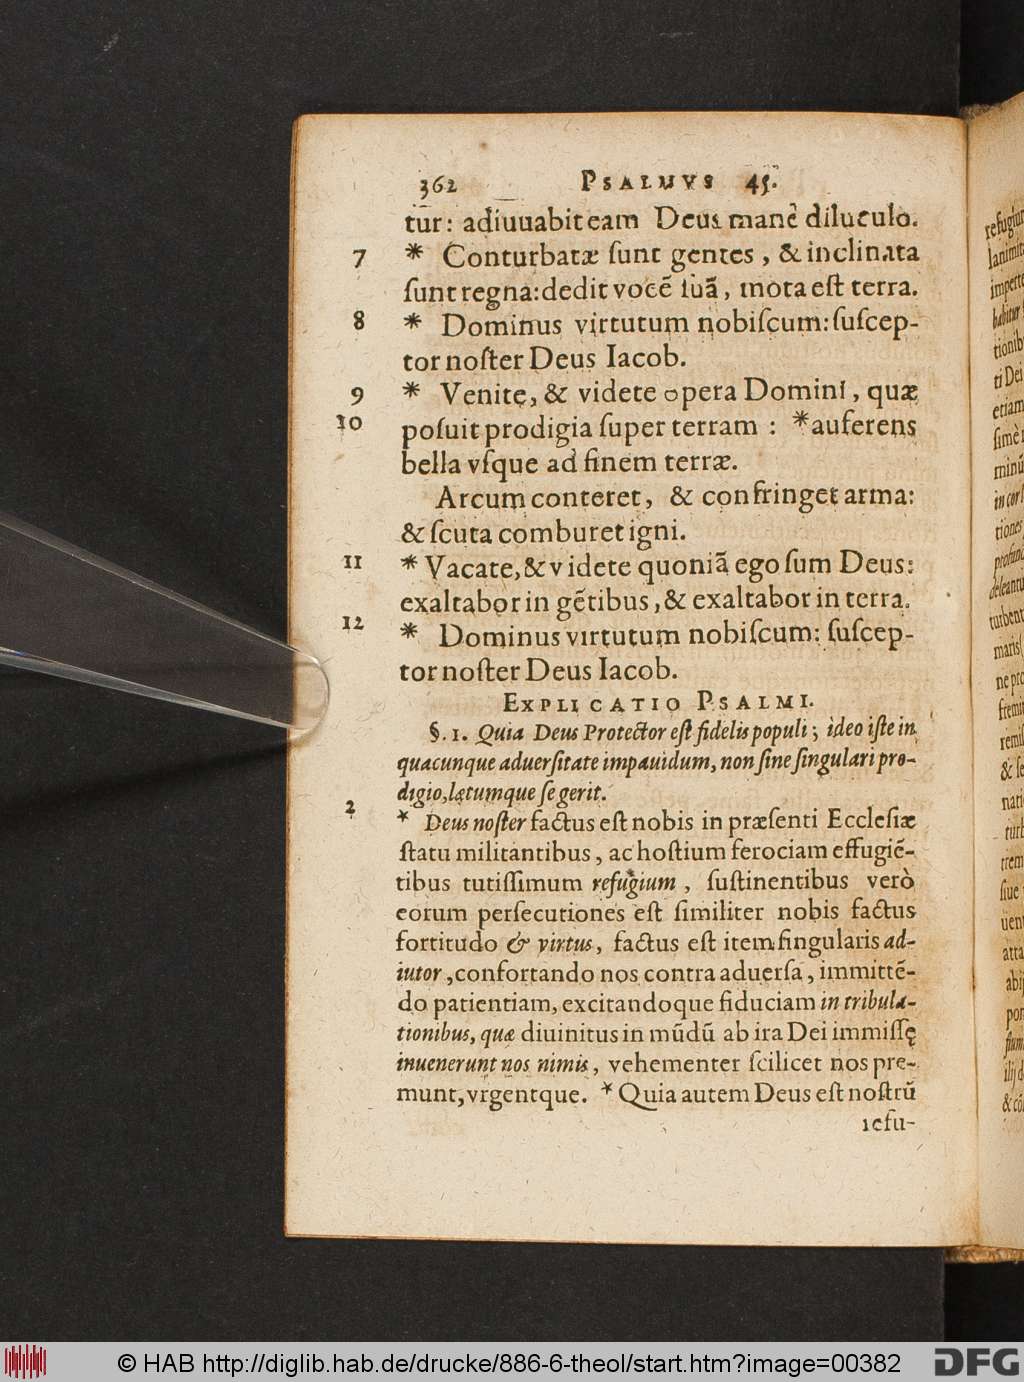 362 PSALMVS 45.
tur: adiuuabit eam Deus manè diluculo.
7 * Conturbatæ ſunt gentes, & inclinata
ſunt regna: dedit vocẽ ſuã, mota eſt terra.
8 * Dominus virtutum nobiſcum: ſuſcep-
tor noſter Deus Iacob.
9 * Venite, & videte opera Domini, quæ
10 poſuit prodigia ſuper terram : * auferens
bella vſque ad finem terræ.
Arcum conteret, & confringet arma:
& ſcuta comburet igni.
11 * Vacate, & videte quoniã ego ſum Deus:
exaltabor in gẽtibus, & exaltabor in terra.
12 * Dominus virtutum nobiſcum: ſuſcep-
tor noſter Deus Iacob.
EXPLICATIO PSALMI.
§. 1. Quia Deus Protector eſt fidelis populi; ideo iſte in
quacunque aduerſitate impauidum, non ſine ſingulari pro-
digio, lętumque ſe gerit.
2 * Deus noſter factus eſt nobis in præſenti Eccleſiæ
ſtatu militantibus, ac hoſtium ferociam effugiẽ-
tibus tutiſſimum refugium, ſuſtinentibus verò
eorum perſecutiones eſt ſimiliter nobis factus
fortitudo & virtus, factus eſt item ſingularis ad-
iutor, confortando nos contra aduerſa, immittẽ-
do patientiam, excitandoque fiduciam in tribula-
tionibus, quæ diuinitus in mũdũ ab ira Dei immiſſę
inuenerunt nos nimis, vehementer ſcilicet nos pre-
munt, vrgentque. * Quia autem Deus eſt noſtrũ
refu-
© HAB http://diglib.hab.de/drucke/886-6-theol/start.htm?image=00382
DFG